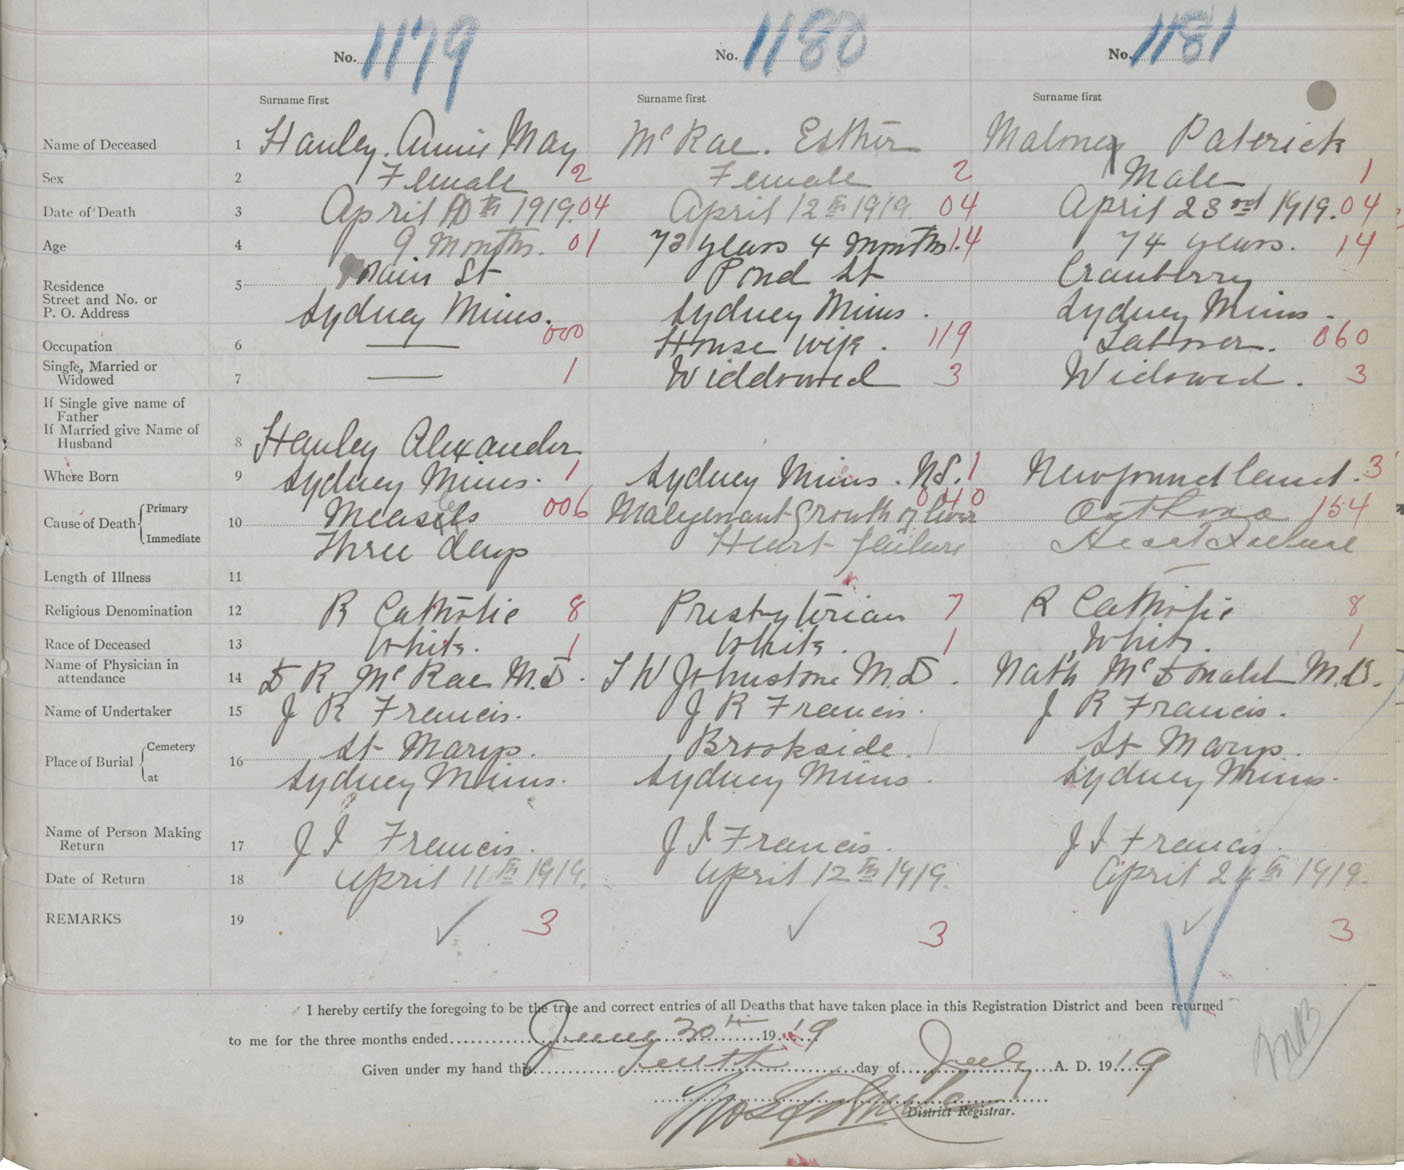 No. 1179 No. 1180 No. 1181
Surname first Surname first Surname first
Name of Deceased 1 Hanley. Annie May McRae. Esther Maloney Paterick
Sex 2 Female 2 Female 2 Male 1
Date of Death 3 April 10th 1919. 04 April 12th 1919 04 April 23rd 1919. 04
Age 4 9 Months. 01 73 years 4 Months. 14 74 years. 14
Residence 5 Main St Pond St Cranberry
Street and No. or
P. O. Address Sydney Mines. Sydney Mines. Sydney Mines.
Occupation 6 000 House wife. 119 Labourer. 060
Single, Married or
Widowed 7 1 Widdowed 3 Widowed. 3
If Single give name of
Father
If Married give Name of
Husband 8 Hanley Alexander
Where Born 9 Sydney Mines. 1 Sydney Mines. N.S. 1 Newfoundland. 3
Cause of Death Primary 10 Measels 006 Malegenant Growth of liver 040 Asthma 154
Immediate Three days Heart failure Heart Failure
Length of Illness 11
Religious Denomination 12 R Catholic 8 Presbyterian 7 R Catholic 8
Race of Deceased 13 White. 1 White. 1 White. 1
Name of Physician in
attendance 14 D R McRae M.D. J W Johnstone M.D. Nath McDonald M.D.
Name of Undertaker 15 J R Francis. J R Francis. J R Francis.
Place of Burial Cemetery 16 St Marys. Brookside. St Marys.
at Sydney Mines. Sydney Mines. Sydney Mines.
Name of Person Making
Return 17 J I Francis. J I Francis. J I Francis.
Date of Return 18 April 11th 1919. April 12th 1919. April 24th 1919.
REMARKS 19 ✓ 3 ✓ 3 ✓ 3
I hereby certify the foregoing to be the true and correct entries of all Deaths that have taken place in this Registration District and been returned
to me for the three months ended June 30th 1919
Given under my hand this Tenth day of July A. D. 1919
District Registrar.